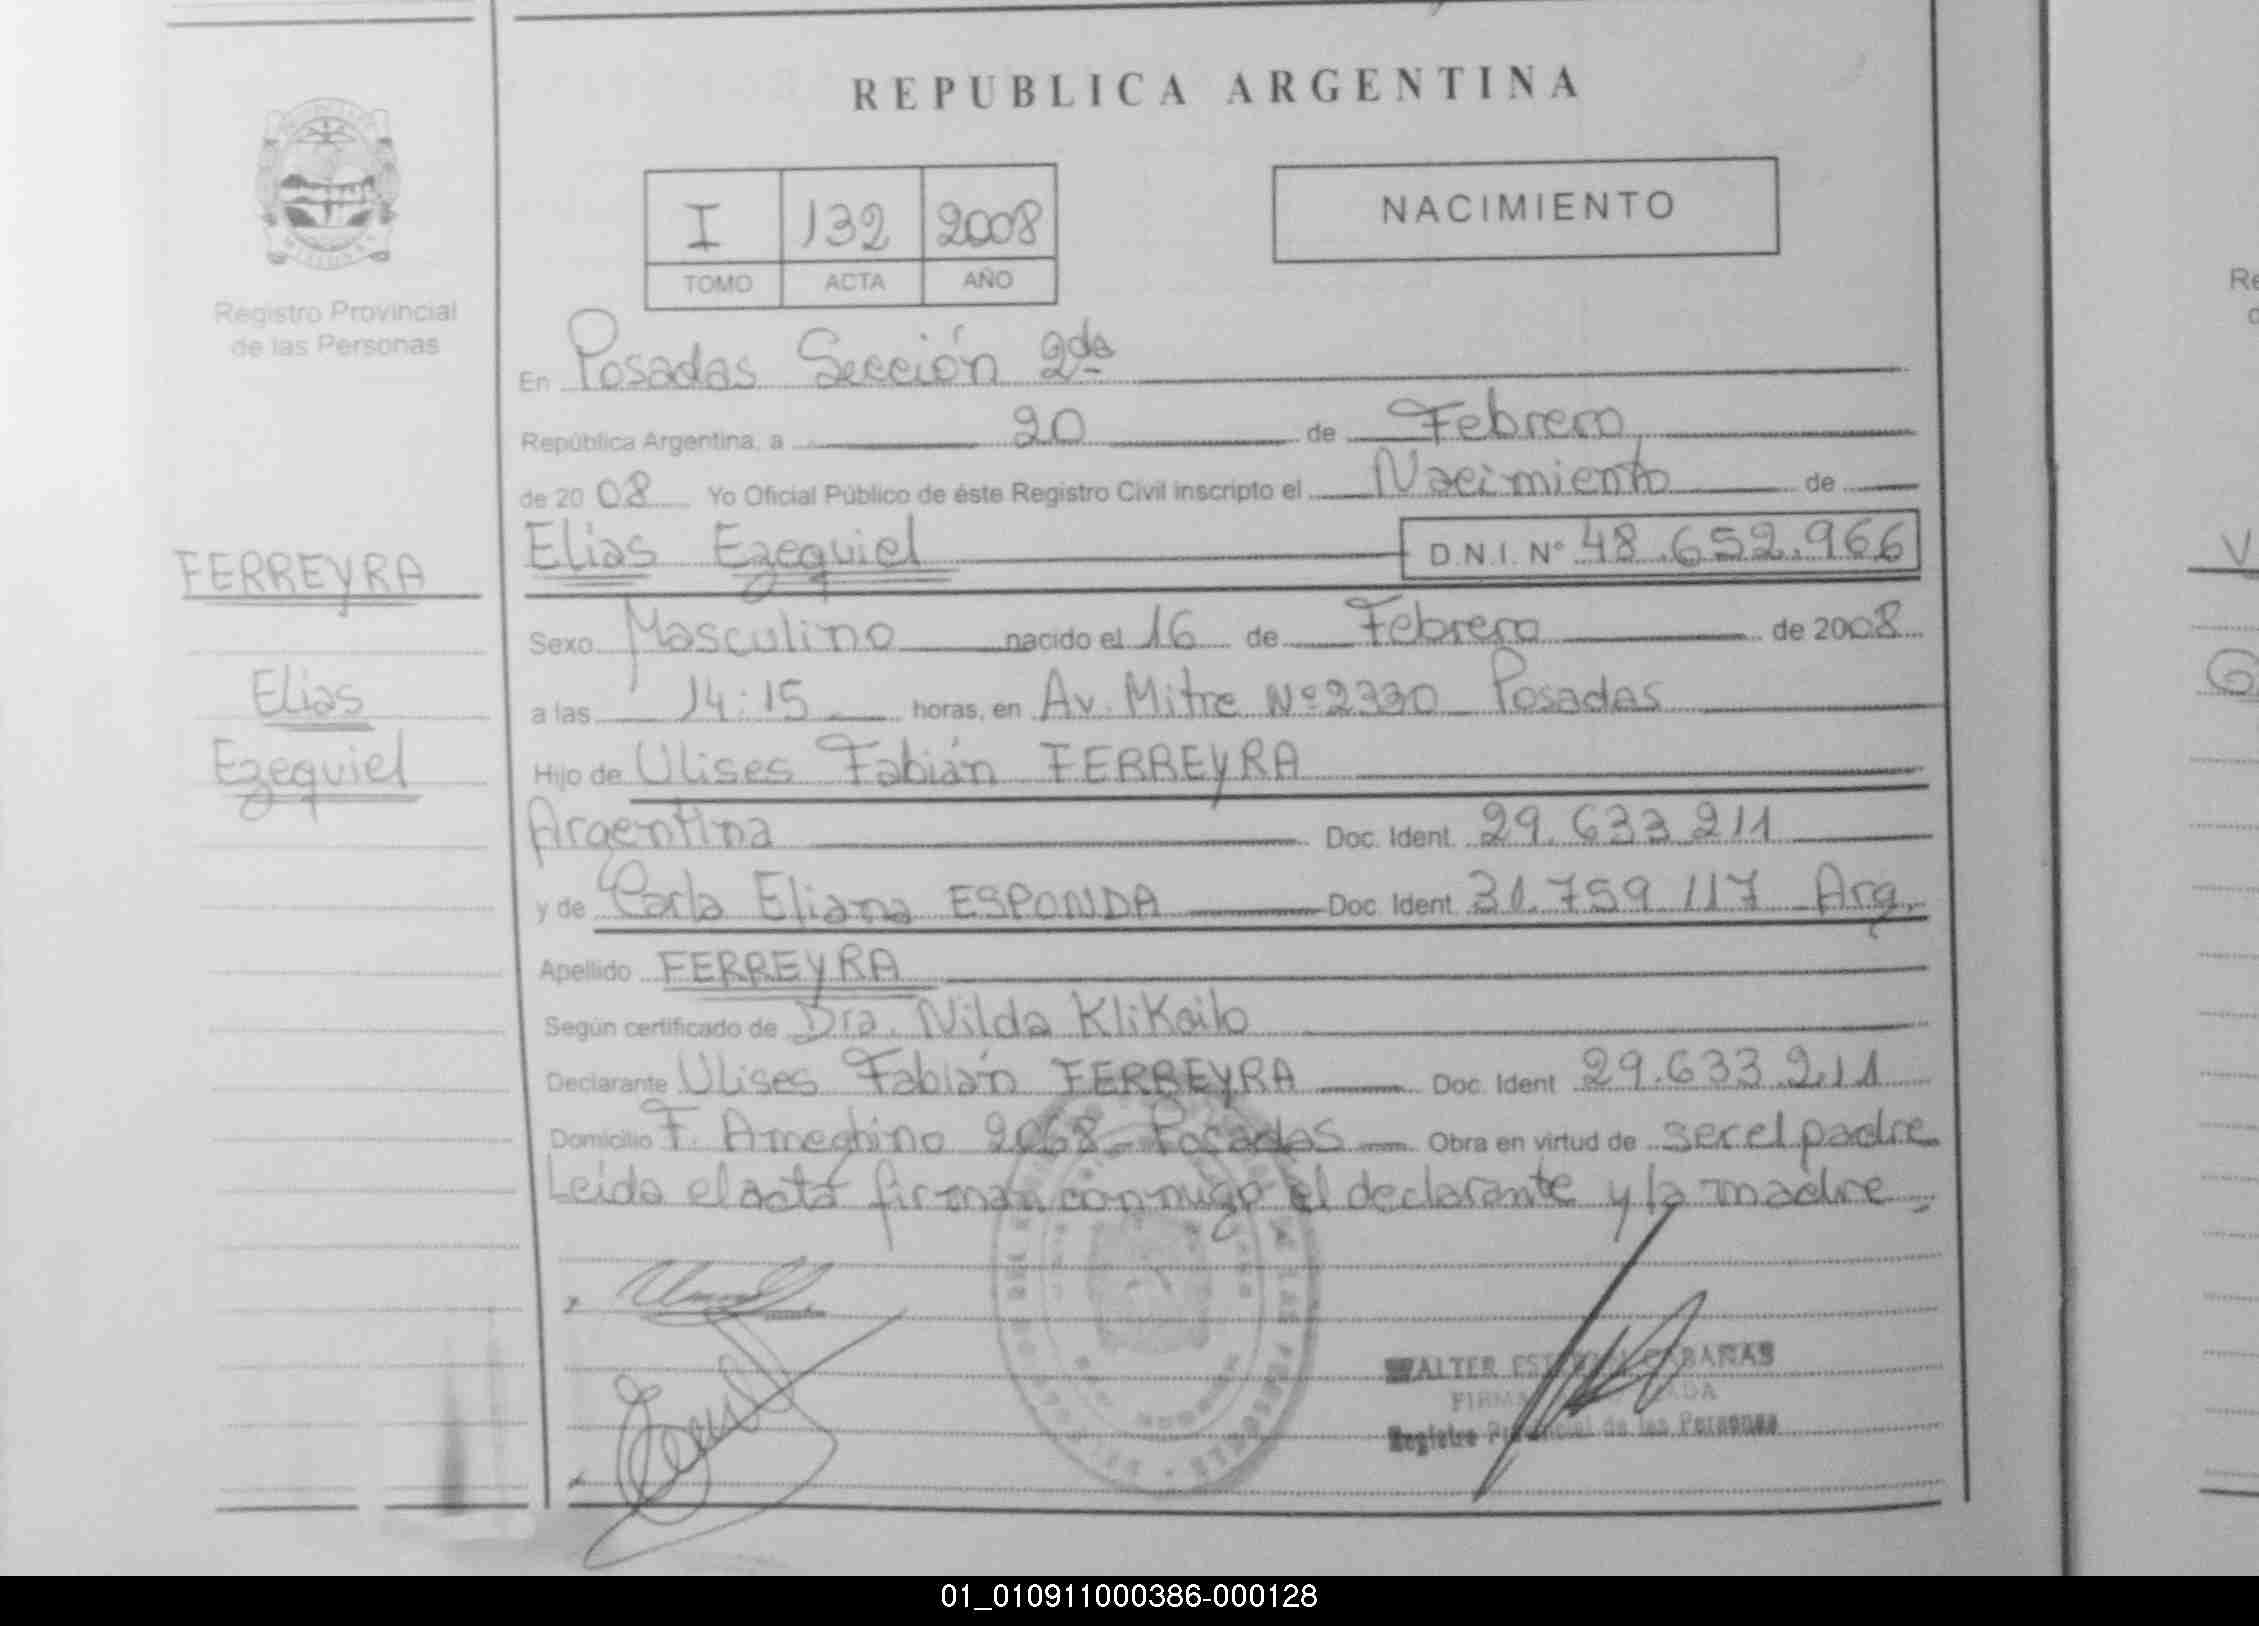 REPUBLICA ARGENTINA
Registro Provincial
de las Personas
I 132 2008
TOMO ACTA AÑO
NACIMIENTO
En Posadas Sección 2da
República Argentina, a 20 de Febrero
de 2008 Yo Oficial Público de éste Registro Civil inscripto el Nacimiento de
Elias Ezequiel D.N.I. N° 48.652.966
FERREYRA
Elias
Ezequiel
Sexo Masculino nacido el 16 de Febrero de 2008
a las 14:15 horas, en Av. Mitre Nº 2330 Posadas
Hijo de Ulises Fabián FERREYRA
Argentina Doc. Ident. 29.633.211
y de Carla Eliana ESPONDA Doc. Ident. 31.759.117 Arg.
Apellido FERREYRA
Según certificado de Dra. Nilda Klikailo
Declarante Ulises Fabián FERREYRA Doc. Ident 29.633.211
Domicilio F. Ameghino 2068 Posadas Obra en virtud de ser el padre
Leida el acta firman conmigo el declarante y la madre.
WALTER CABAÑAS
Registro Provincial de las Personas
Re
V
G
01_010911000386-000128